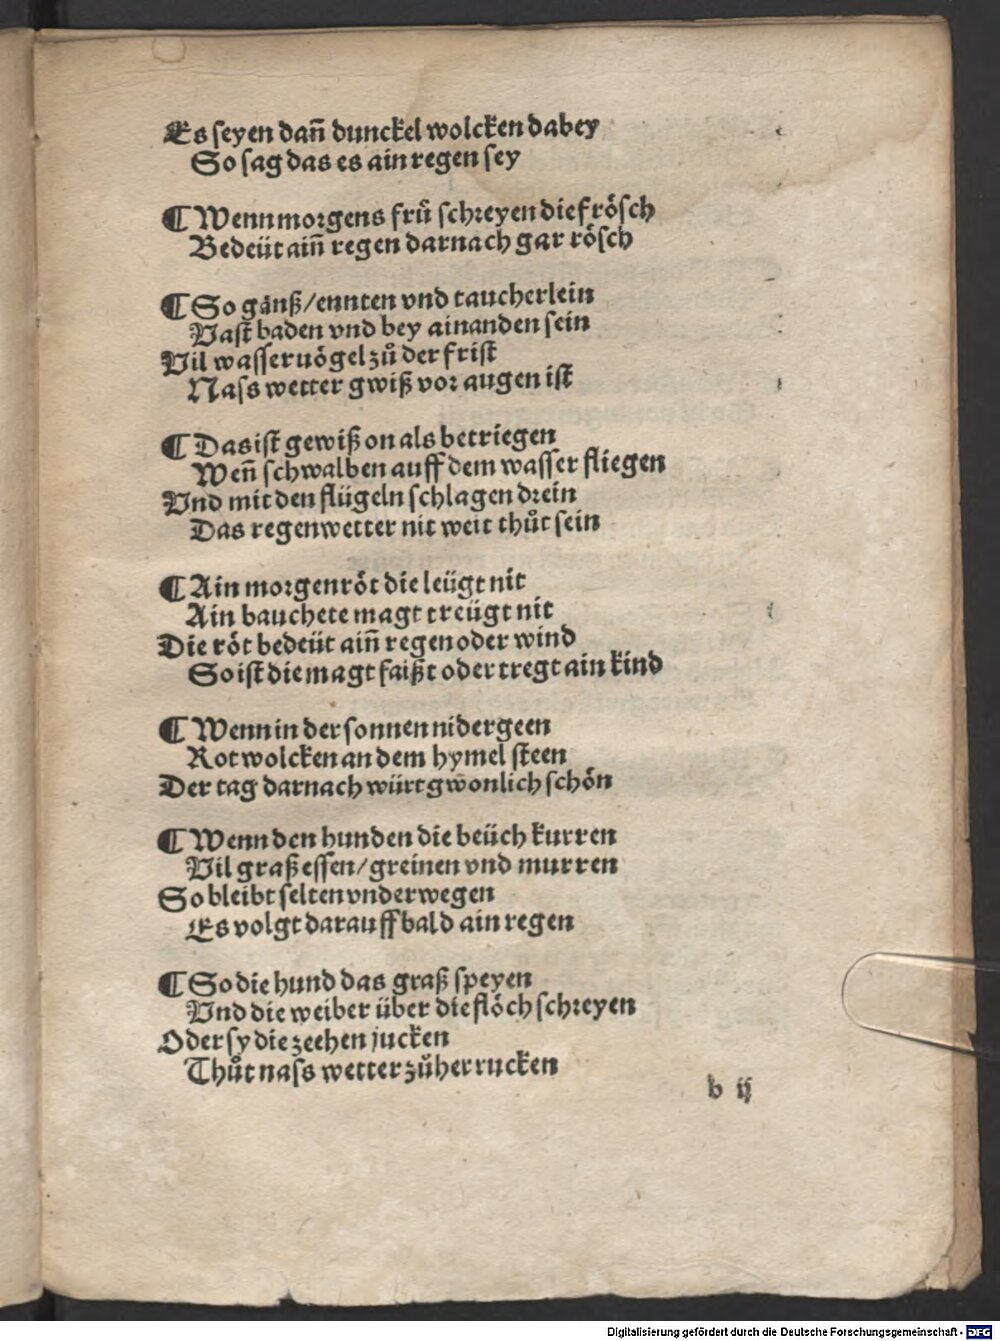 Es seyen dañ dunckel wolcken dabey
So sag das es ain regen sey
¶ Wenn morgens frů schreyen die frösch
Bedeüt aiñ regen darnach gar rösch
¶ So gänß/ennten vnd taucherlein
Vast baden vnd bey ainanden sein
Vil wasseruögel zů der frist
Nass wetter gwiß vor augen ist
¶ Das ist gewiß on als betriegen
Weñ schwalben auff dem wasser fliegen
Vnd mit den flügeln schlagen drein
Das regenwetter nit weit thůt sein
¶ Ain morgenröt die leügt nit
Ain bauchete magt treügt nit
Die röt bedeüt aiñ regen oder wind
So ist die magt faißt oder tregt ain kind
¶ Wenn in der sonnen nidergeen
Rot wolcken an dem hymel steen
Der tag darnach würt gwonlich schön
¶ Wenn den hunden die beüch kurren
Vil graß essen/greinen vnd murren
So bleibt selten vnderwegen
Es volgt darauff bald ain regen
¶ So die hund das graß speyen
Vnd die weiber über die flöch schreyen
Oder sy die zeehen jucken
Thůt nass wetter zůher rucken
b ij
Digitalisierung gefördert durch die Deutsche Forschungsgemeinschaft - DFG